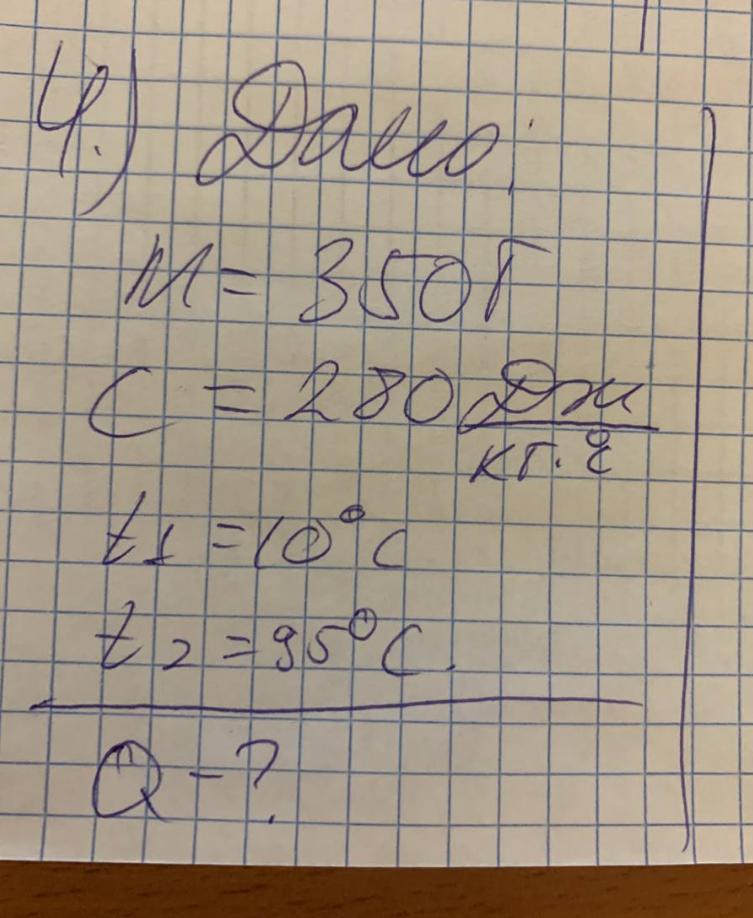 4.) Дано:
м = 350г
С = 280 Дж
кг.°С
t1 = 10°С
t2 = 95°С.
Q - ?